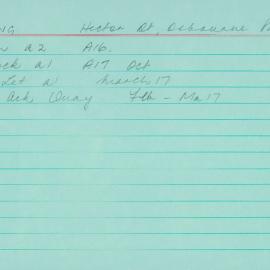 NG Hector St, Osborne P
a2 A16.
ck a1 A17 Oct
Let a1 March 17
Ack, Quay Feb - Ma 17